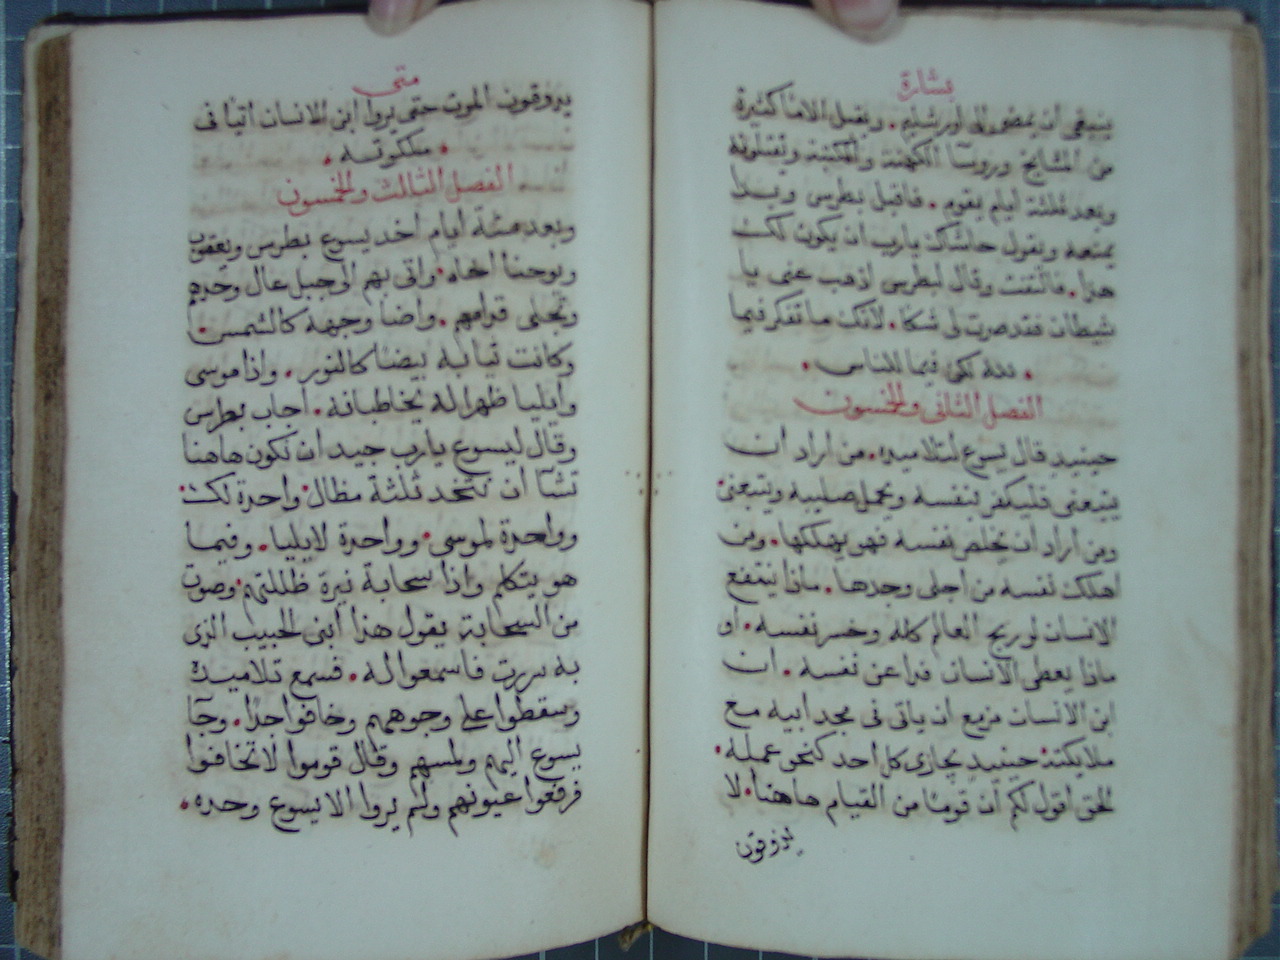 بشارة
ينبغي أن يمضي الى اورشليم. ويقبل الاما كثيرة
من المشايخ وروسآ الكهنة والكتبة ويقتلونه
وبعد ثلثة ايام يقوم. فاقبل بطرس وبدا
يمنعه ويقول حاشاك يارب ان يكون لك
هذا. فالتفت وقال لبطرس اذهب عني يا
شيطان فقد صرت لي شكا. لانك ما تفكر فيما
لله لكن فيما للناس.
الفصل الثاني والخمسون
حينيد قال يسوع لتلاميده. من اراد ان
يتبعني فليكفر بنفسه ويحمل صليبه ويتبعني
ومن اراد أن يخلص نفسه فهو يهلكها. ومن
اهلك نفسه من اجلي وجدها. ماذا ينتفع
الانسان لو ربح العالم كله وخسر نفسه. او
ماذا يعطي الانسان فدا عن نفسه. ان
ابن الانسان مزمع ان ياتي في مجد ابيه مع
ملايكته حينيد يجازي كل احد كنحو عمله.
الحق اقول لكم ان قوما من القيام هاهنا. لا
يذوقون
متى
يذوقون الموت حتى يروا ابن الانسان اتيا في
. ملكوته.
الفصل الثالث والخمسون
وبعد ستة ايام اخد يسوع بطرس ويعقوب
ويوحنا اخاه. واتى بهم الى جبل عال وحدهم
وتجلى قدامهم. واضا وجهه كالشمس.
وكانت ثيابه بيضا كالنور. واذا موسى
وايليا ظهرا له يخاطبانه. اجاب بطرس
وقال ليسوع يارب جيد ان نكون هاهنا
تشآ ان نتخد ثلثة مظال واحدة لك.
وواحدة لموسى. وواحدة لايليا. وفيما
هو يتكلم واذا سحابة نيرة ظللتهم. وصوت
من السحابة يقول هذا ابني الحبيب الذي
به سررت فاسمعوا له. فسمع تلاميده
وسقطوا على وجوههم وخافوا جدا. وجآ
يسوع اليهم ولمسهم وقال قوموا لا تخافوا
فرفعوا عيونهم ولم يروا الا يسوع وحده.